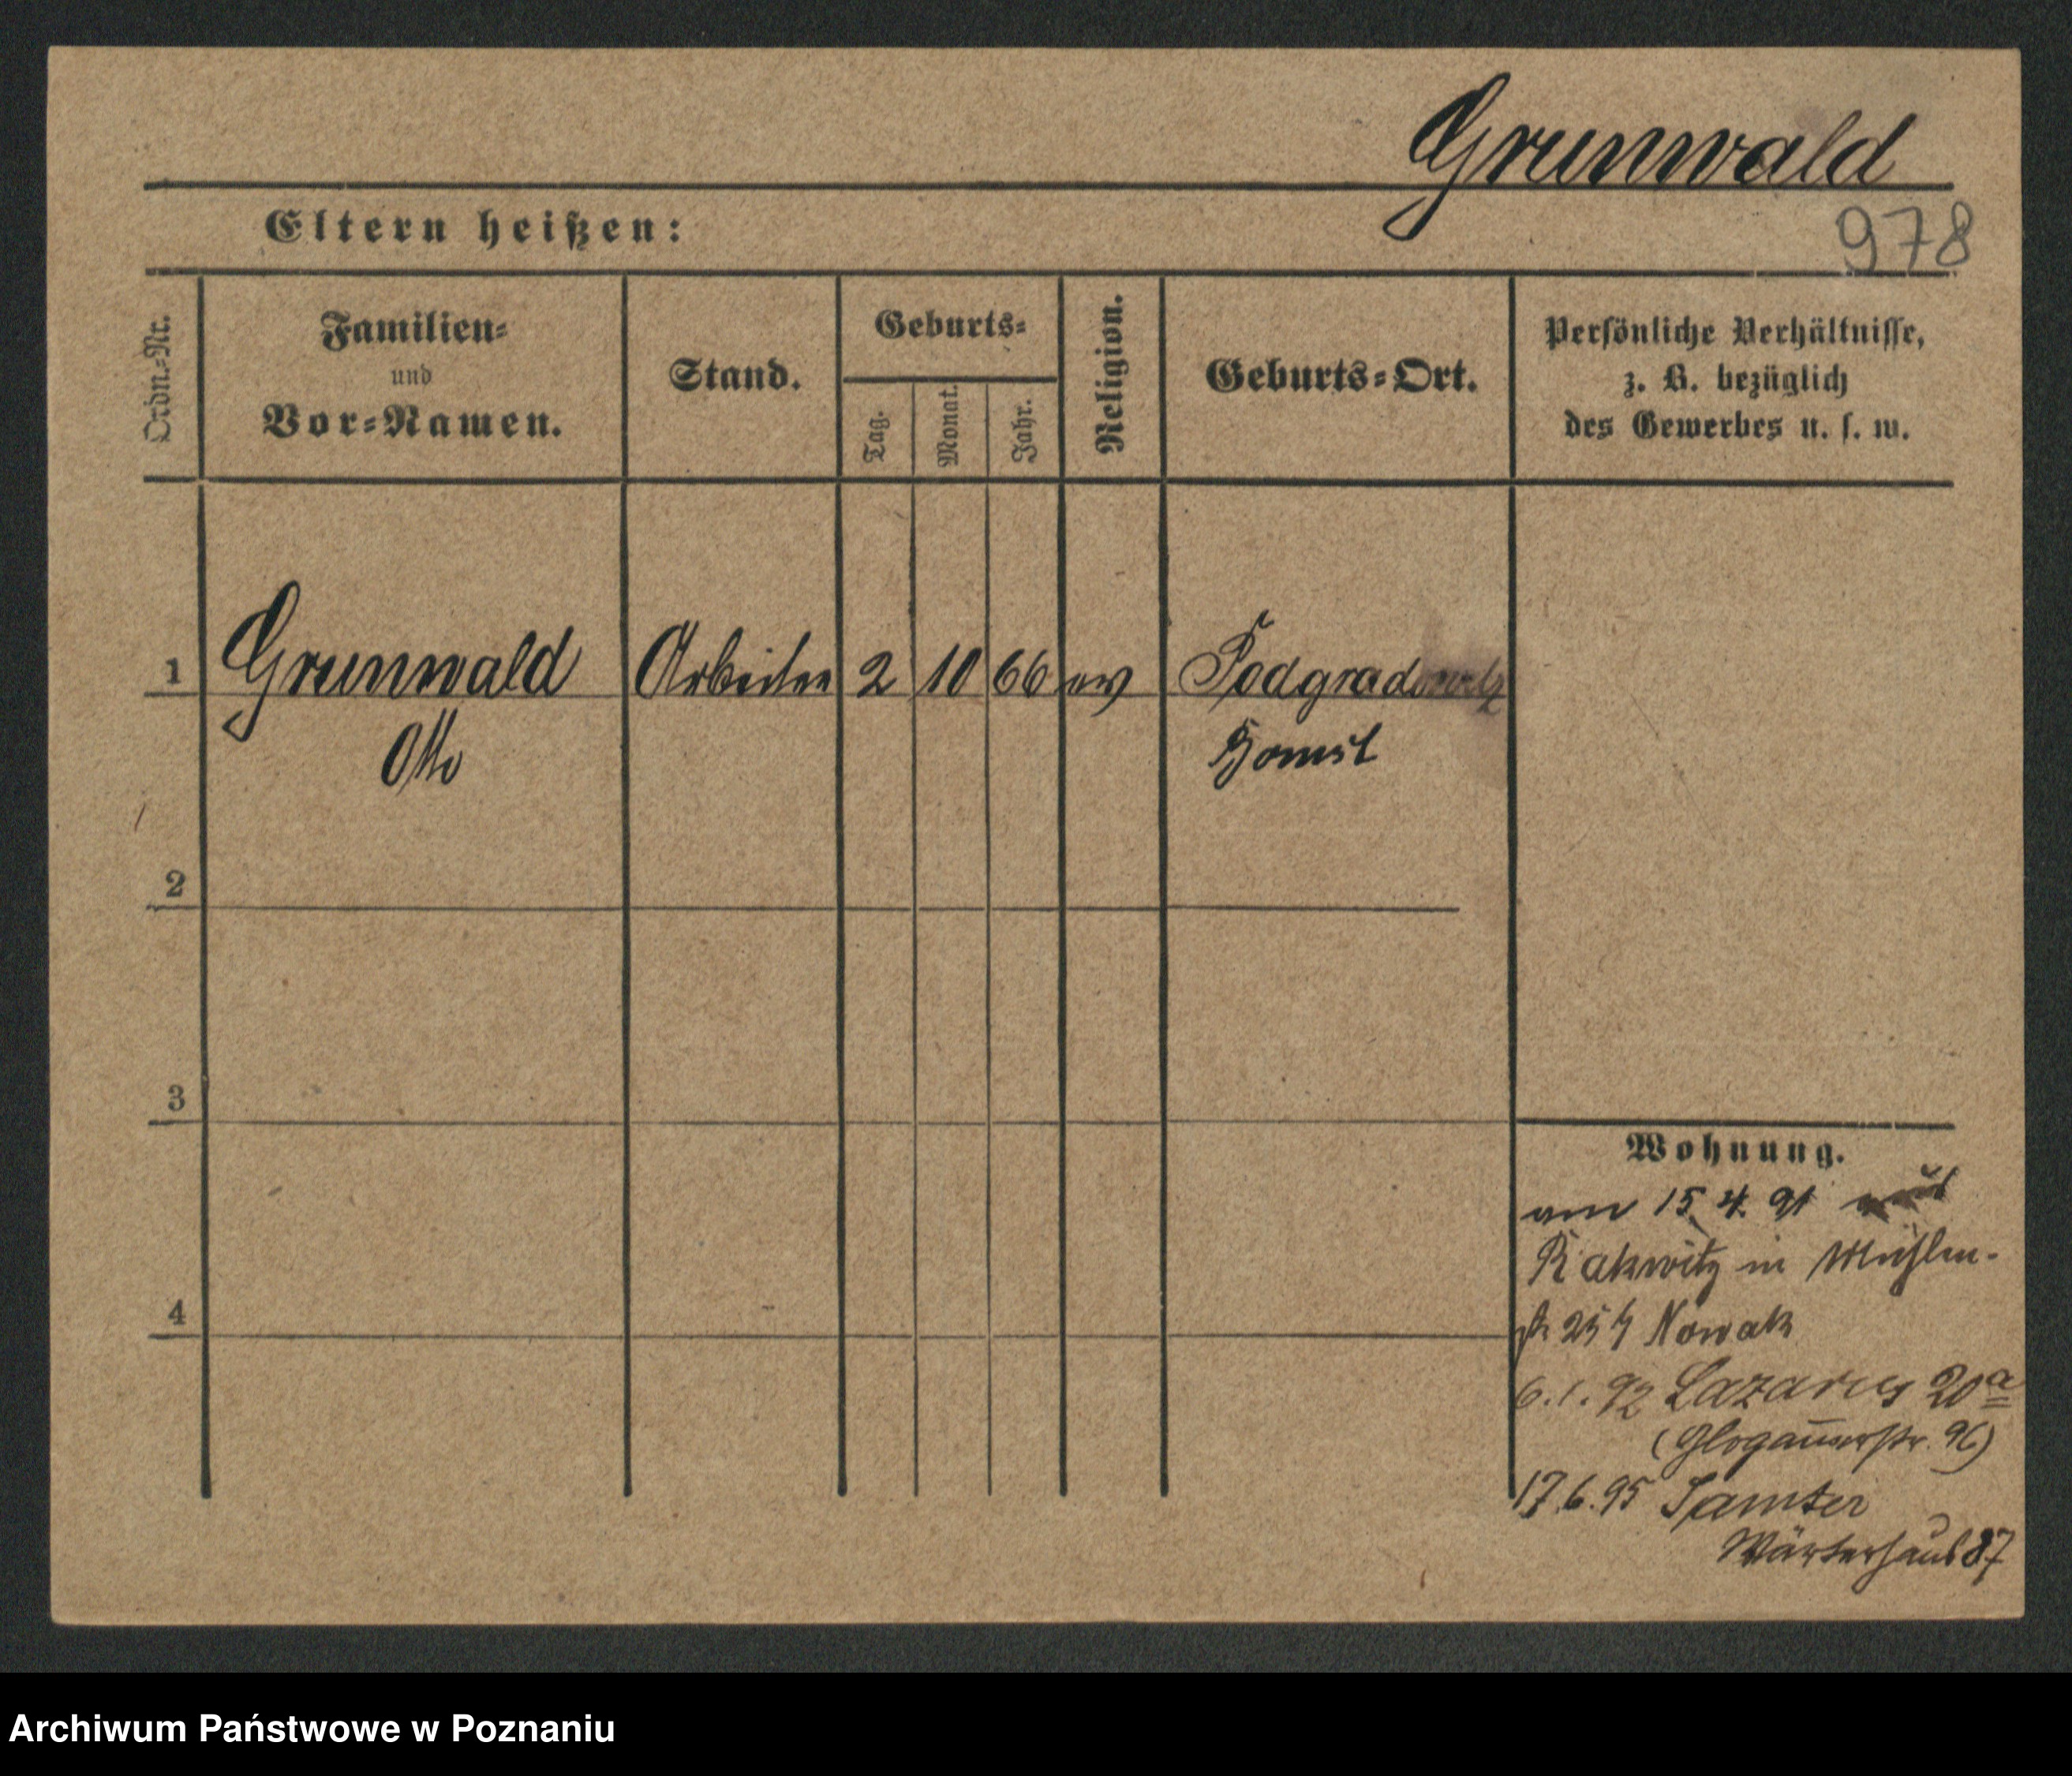 Grunwald
978
Eltern heißen:
Ordn.-Nr.
Familien-
und
Vor-Namen.
Stand.
Geburts-
Tag.
Monat.
Jahr.
Religion.
Geburts-Ort.
Persönliche Verhältnisse,
z. B. bezüglich
des Gewerbes u. s. w.
1 Grunwald Arbeiter 2 10 66 ev Podgradowitz
Otto Bomst
2
3
4
Wohnung.
am 15. 4. 91 aus
Rakwitz in Mühlen-
str 25 Nowak
6. 1. 92 Lazarus 20a
(Glogauerstr. 96)
17.6.95 Samter
Wärterhaus 87
Archiwum Państwowe w Poznaniu